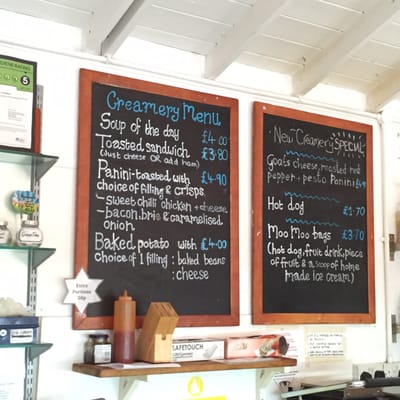 Creamery Menu
Soup of the day £4·00
Toasted sandwich £3·80
(Just cheese OR add ham)
Panini-toasted with £4·90
choice of filling & crisps.
-sweet chilli chicken + cheese
-bacon, brie & caramelised
onion
Baked potato with £4·00
choice of 1 filling: baked beans
: cheese
"New" Creamery SPECIAL
Goats cheese, roasted red
pepper + pesto Panini
Hot dog £1·70
Moo Moo bags £3·70
(hot dog, fruit drink, piece
of fruit & a scoop of home
made ice cream)
Extra
Portions
SAFETOUCH
5